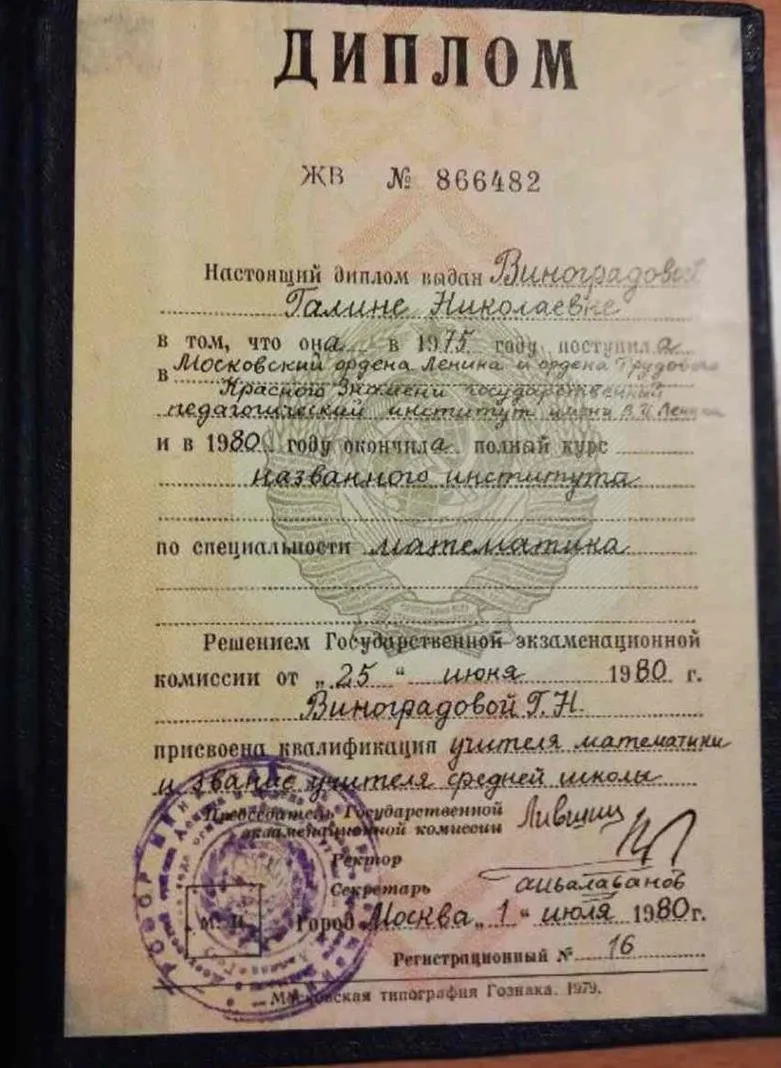 ДИПЛОМ
ЖВ № 866482
Настоящий диплом выдан Виноградовой
Галине Николаевне
в том, что она в 1975 году поступила
в Московский ордена Ленина и ордена Трудового
Красного Знамени государственный
педагогический институт имени В.И. Ленина
и в 1980 году окончила полный курс
названного института
по специальности математика
Решением Государственной экзаменационной
комиссии от „25“ июня 1980 г.
Виноградовой Г.Н.
присвоена квалификация учителя математики
и звание учителя средней школы
Председатель Государственной
экзаменационной комиссии Лившиц
Ректор
Секретарь
М. П. Город Москва „1“ июля 1980 г.
Регистрационный № 16
Московская типография Гознака. 1979.